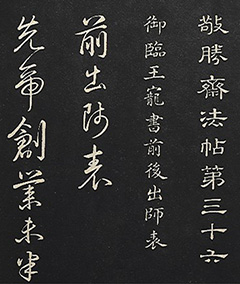 敬勝齋法帖第三十六
御臨王寵書前後出師表
前出師表
先帝創業未半